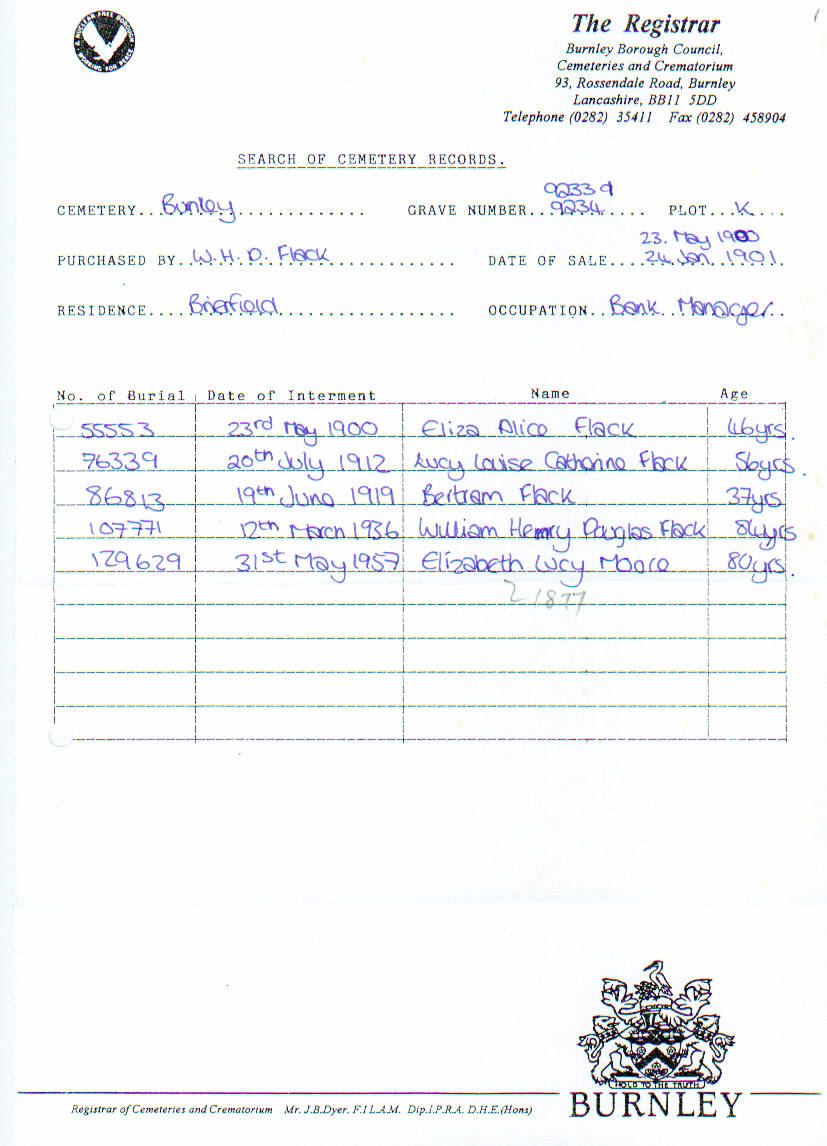 The Registrar
Burnley Borough Council,
Cemeteries and Crematorium
93, Rossendale Road, Burnley
Lancashire, BB11 5DD
Telephone (0282) 35411 Fax (0282) 458904
SEARCH OF CEMETERY RECORDS.
9233 &
CEMETERY...Burnley............. GRAVE NUMBER...9234..... PLOT...K....
23. May 1900
PURCHASED BY..W.H.D. Flack............. DATE OF SALE....24.Jan..1901.
RESIDENCE....Brierfield.................. OCCUPATION..Bank..Manager..
No. of Burial Date of Interment Name Age
55553 23rd May 1900 Eliza Alice Flack 46yrs.
76339 20th July 1912 Lucy Louise Catherine Flack 56yrs.
86813 19th June 1919 Bertram Flack 37yrs
107771 12th March 1936 William Henry Douglas Flack 84yrs
129629 31st May 1957 Elizabeth Lucy Moore 80yrs.
1877
HOLD TO THE TRUTH
BURNLEY
Registrar of Cemeteries and Crematorium Mr. J.B.Dyer. F.I L.A.M. Dip.I.P.R.A. D.H.E.(Hons)